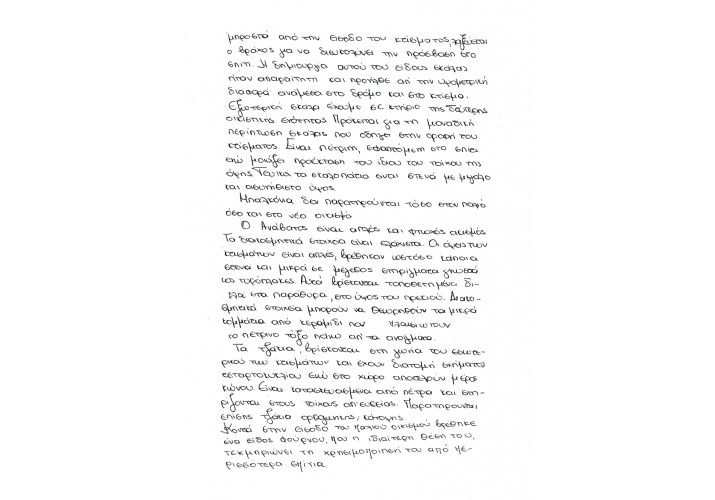 μπροστά από την είσοδο του κτίσματος, λαξεύεται
ο βράχος για να διευκολύνει την πρόσβαση στο
σπίτι. Η δημιουργία αυτού του είδους σκάλας
ήταν απαραίτητη και προήλθε απ' την υψομετρική
διαφορά ανάμεσα στο δρόμο και στο κτίσμα.
Εξωτερική σκάλα έχουμε σε κτήριο της δεύτερης
οικιστικής ενότητας Πρόκειται για τη μοναδική
περίπτωση σκάλας που οδηγεί στην οροφή του
κτίσματος. Είναι πέτρινη, εφαπτόμενη στο σπίτι
ενώ μοιάζει προέκταση του ίδιου του τοίχου της
όψης. Γενικά τα σκαλοπάτια είναι στενά με μεγάλο
και ασυνήθιστο ύψος.
Μπαλκόνια δεν παρατηρούνται τόσο στον παλιό
όσο και στο νέο οικισμό
Ο Ανάβατος είναι απλός και φτωχός οικισμός
Τα διακοσμητικά στοιχεία είναι ελάχιστα. Οι όψεις των
κτισμάτων είναι απλές, βρέθηκαν ωστόσο κάποια
στενά και μικρά σε μέγεθος στηρίγματα γνωστά
ως πυρόπλακες. Αυτά βρίσκονται τοποθετημένα δί-
πλα στα παράθυρα, στο ύψος του πρεκιού. Διακο-
σμητικά στοιχεία μπορούν να θεωρηθούν τα μικρά
κομμάτια από κεραμίδι που πλαισιώνουν
το πέτρινο τόξο πάνω απ' τα ανοίγματα.
Τα τζάκια, βρίσκονται στη γωνία του εσωτε-
ρικού των κτισμάτων και έχουν διατομή σχήματος
τεταρτοκυκλίου ενώ στο χώρο αποτελούν μέρος
κώνου. Είναι κατασκευασμένα από πέτρα και στη-
ρίζονται στους τοίχους απ' ευθείας. Παρατηρούνται
επίσης τζάκια ορθογωνικής κάτοψης
Κοντά στην είσοδο του παλιού οικισμού βρέθηκε
ένα είδος φούρνου, που η ιδιαίτερη θέση του,
τεκμηριώνει τη χρησιμοποίησή του από πε-
ρισσότερα σπίτια.